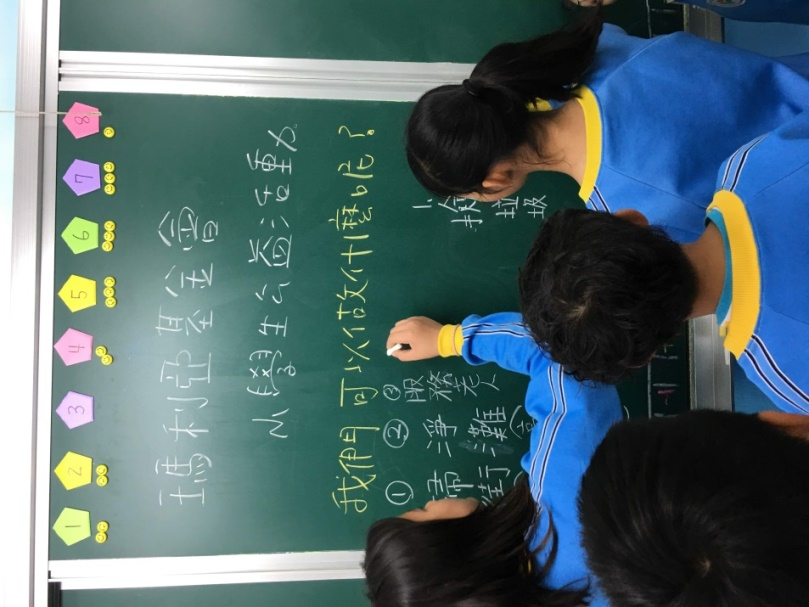 1 2 3 4 5 6 7 8
瑪利亞基金會
小學生公益活動
我們可以做什麼呢?
① 掃街
② 淨灘
③ 服務老人
撿垃圾